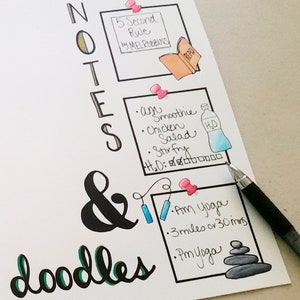 NOTES
&
doodles
5 Second
Rule
by MEL ROBBINS
READ
• AM
Smoothie
• Chicken
Salad
• Stirfry
H2O:
H2O
• AM Yoga
• 3 miles or 30 mins
• PM Yoga